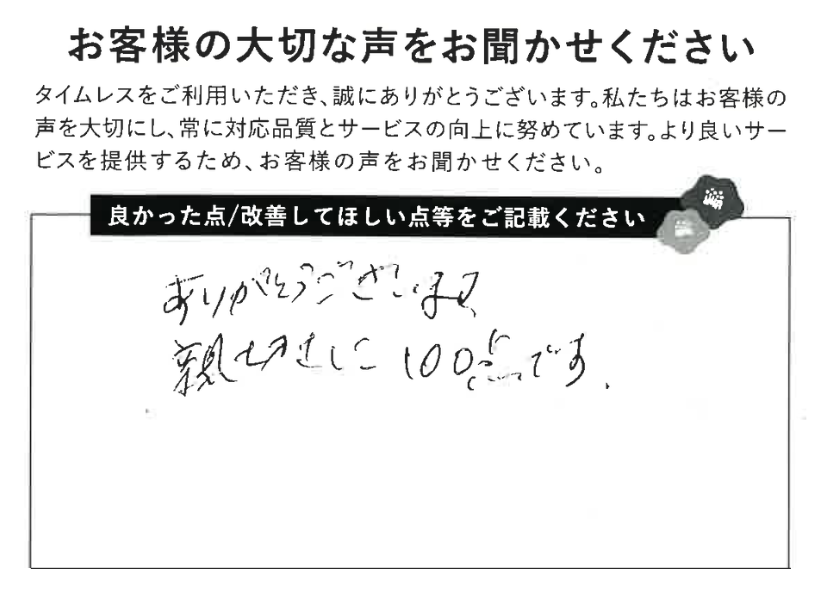 お客様の大切な声をお聞かせください
タイムレスをご利用いただき、誠にありがとうございます。私たちはお客様の
声を大切にし、常に対応品質とサービスの向上に努めています。より良いサー
ビスを提供するため、お客様の声をお聞かせください。
良かった点/改善してほしい点等をご記載ください
ありがとうございます
親切さに100点です.